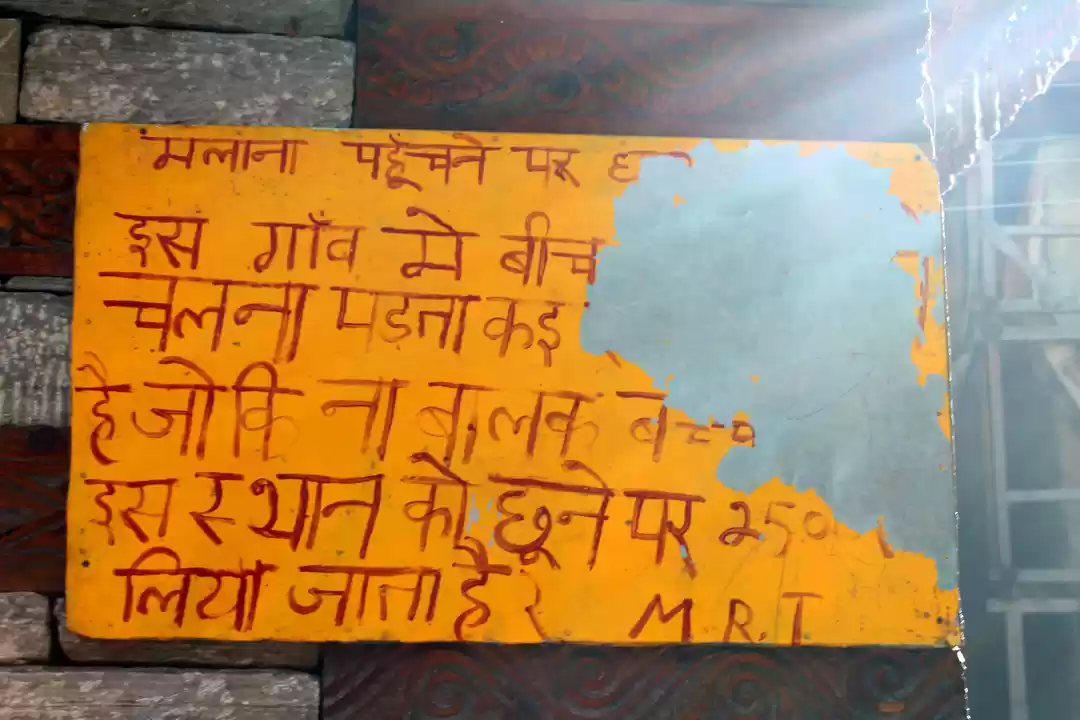 मलाना पहुँचने पर
इस गाँव मे बीच
चलना पडता कइ
है जो कि ना बालक बच्च
इस स्थान को छूने पर २50
लिया जाता है
M.R.T